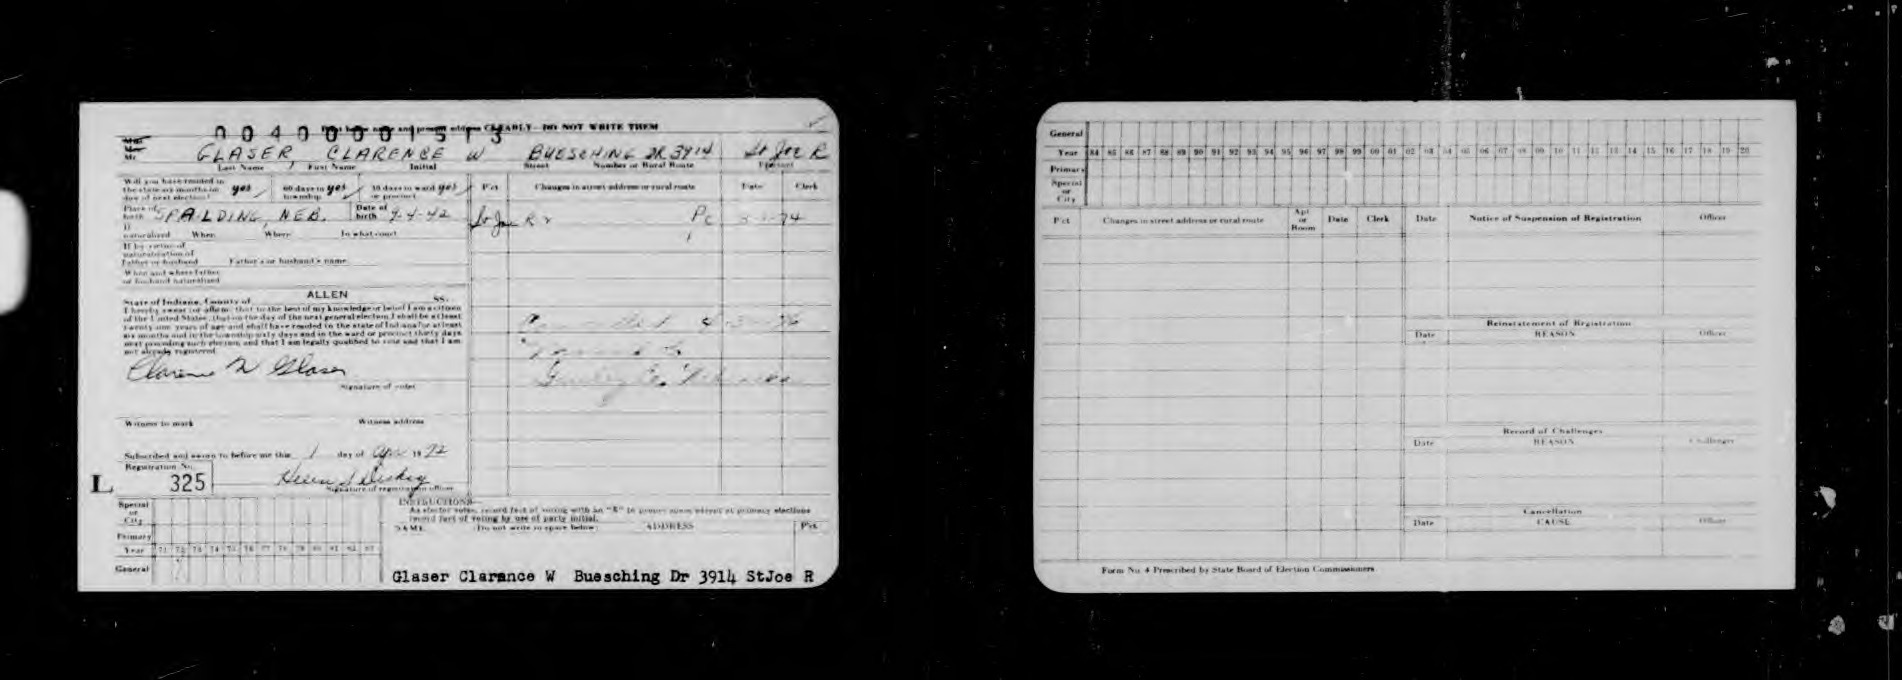 0040001513
Print below name and present address CLEARLY—DO NOT WRITE THEM
Miss
Mrs.
Mr.
GLASER, CLARENCE W BUESCHING DR 3914 St Joe R
Last Name First Name Initial Street Number or Rural Route Precinct
Will you have resided in the state six months on day of next election? yes 60 days in township yes 30 days in ward or precinct yes
Pct Changes in street address or rural route Date Clerk
Place of birth SPALDING, NEB. Date of birth 9-4-42
St Joe R 2 Pc 74
If naturalized When Where In what court
If by virtue of naturalization of father or husband Father's or husband's name
When and where father or husband naturalized
State of Indiana, County of ALLEN SS.
I hereby swear (or affirm) that to the best of my knowledge or belief I am a citizen
of the United States, that on the day of the next general election I shall be at least
twenty-one years of age and shall have resided in the state of Indiana for at least
six months and in the township sixty days and in the ward or precinct thirty days
next preceding such election, and that I am legally qualified to vote and that I am
not already registered.
Cancelled 4 76
Clarence W Glaser
Signature of voter
Witness to mark Witness address
Subscribed and sworn to before me this 1 day of Apr 1972
Registration No.
L 325 Helen
Signature of registration officer
INSTRUCTIONS—
As elector votes, record fact of voting with an "X" in proper space except at primary elections
record fact of voting by use of party initial.
NAME (Do not write in space below) ADDRESS Pct.
Special or City
Primary
Year 71 72 73 74 75 76 77 78 79 80 81 82 83
General
Glaser Clarance W Buesching Dr 3914 StJoe R
General
Year 84 85 86 87 88 89 90 91 92 93 94 95 96 97 98 99 00 01 02 03 04 05 06 07 08 09 10 11 12 13 14 15 16 17 18 19 20
Primary
Special or City
Pct Changes in street address or rural route Apt or Room Date Clerk Date Notice of Suspension of Registration Officer
Reinstatement of Registration
Date REASON Officer
Record of Challenges
Date REASON Challenger
Cancellation
Date CAUSE Officer
Form No. 4 Prescribed by State Board of Election Commissioners